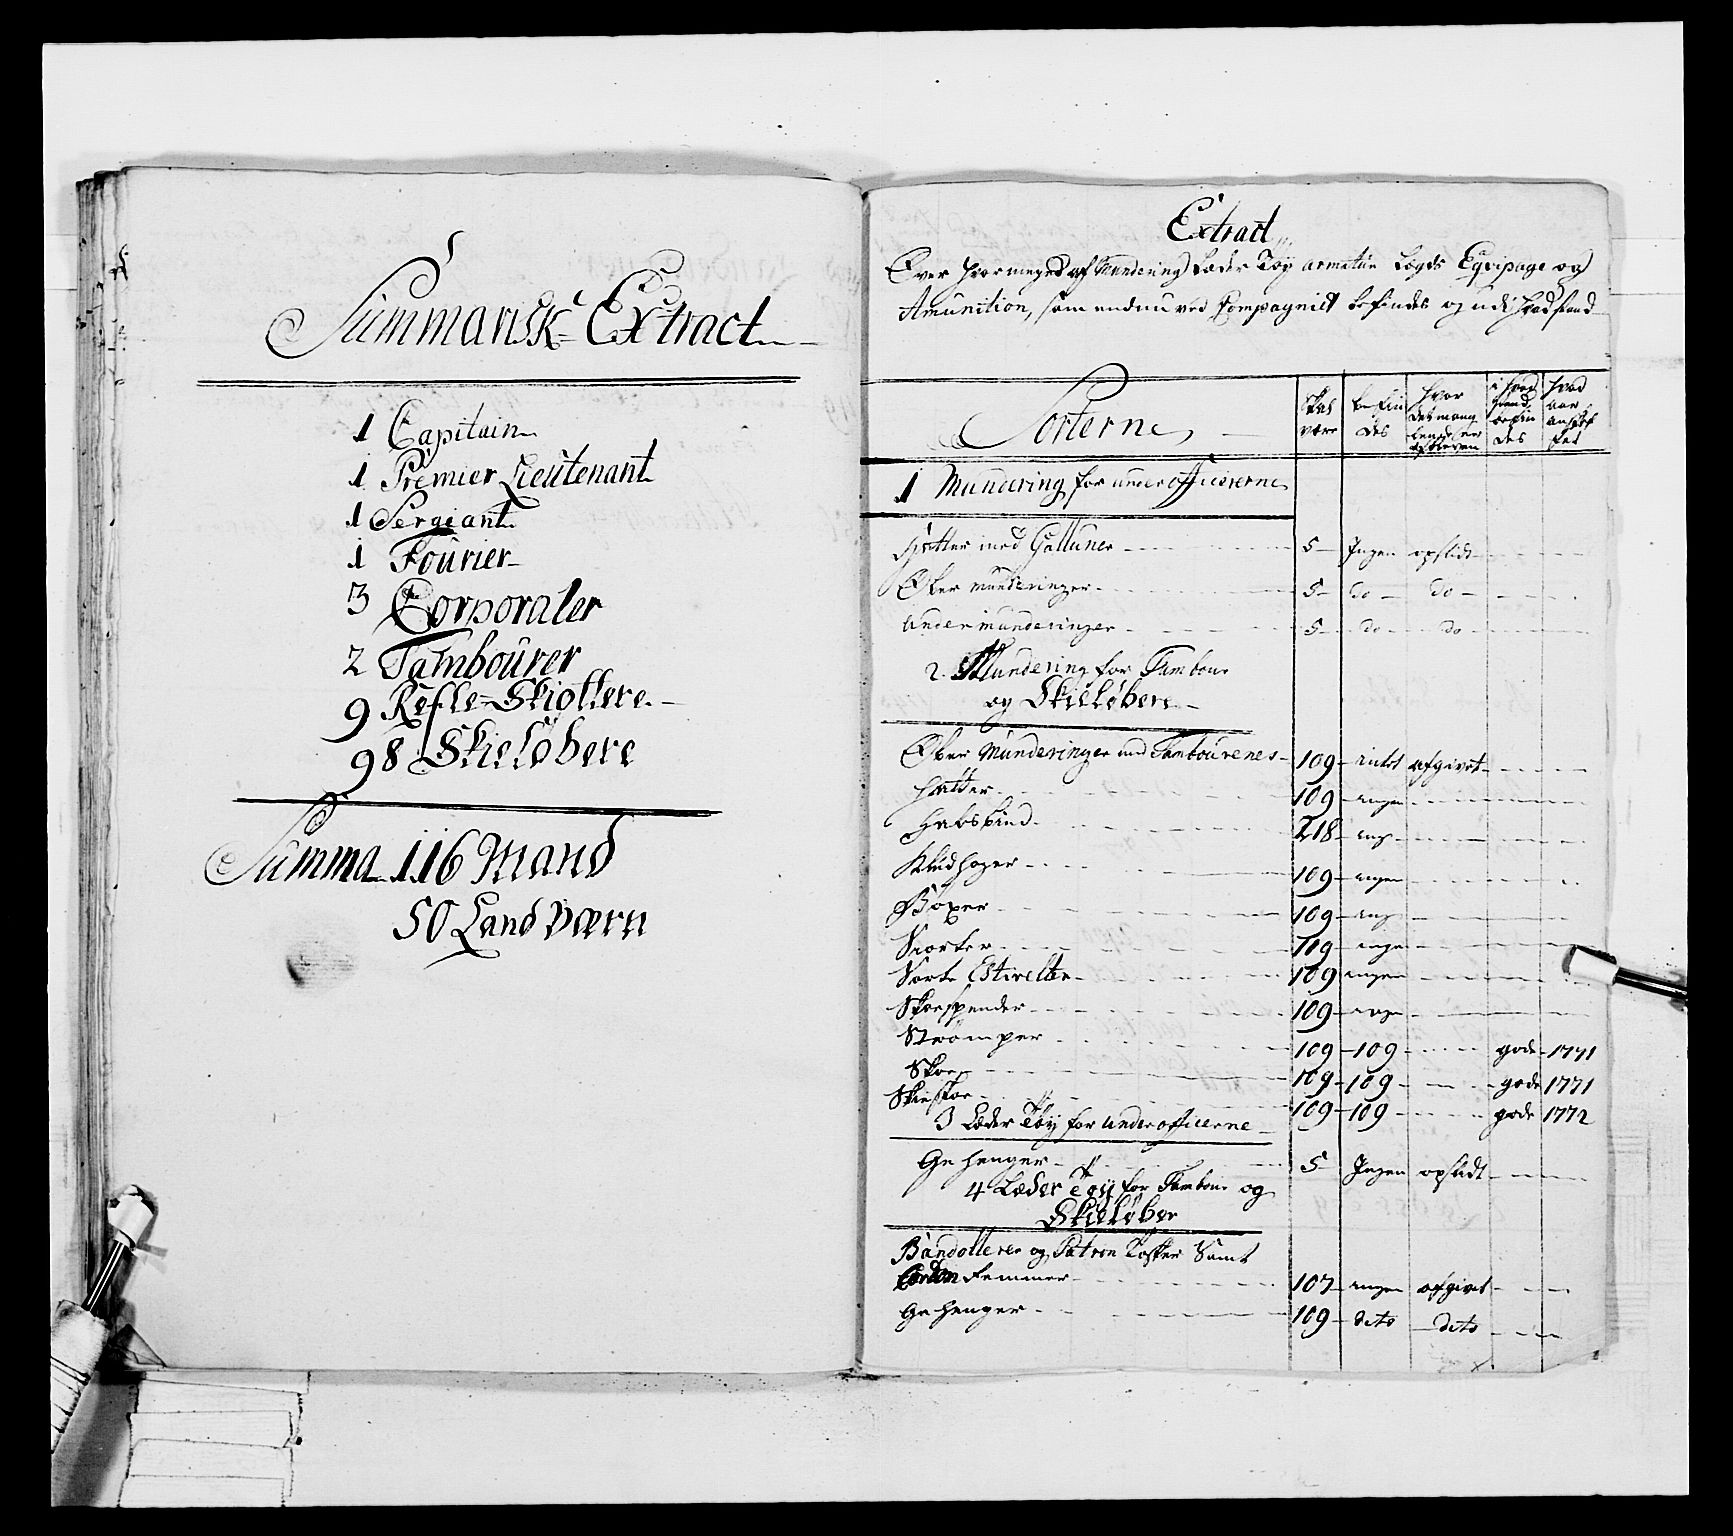 Summarisk Extract
1 Capitain
1 Premier Lieutenant
1 Sergiant
1 Fourier
3 Corporaler
2 Tambourer
9 Refle-Skiøttere
98 Skieløbere
Summa 116 Mand
50 Land værn
Extract
Over hvormeged af Mundering Læder Tøy armatur Legds Eqvipage og
Amunition, som endnu ved Compagniet befindes og udi hvad stand
Sorterne
skal være
befindes
hvor det manglende er afbleven
i hvad stand befindes
hvad aar anskaffet
1 Mundering for underofficererne
Hatter med Galluner 5 Ingen opslidt
Ober munderinger 5 do do
Under munderinger 5 do do
2. Mundering for Tambour
og Skieløbere
Ober Munderinger med Tambourenes 109 intet afgivet
Hatter 109 ingen
Halsbind 218 ing
109 ingen
Boxer 109 ing
Skiorter 109 ingen
Sorte Estivelter 109 ingen
Skoespender 109 ingen
Strømper 109 109 gode 1771
Skoe 109 109 gode 1771
109 109 gode 1772
3 Læder Tøy for underofficerne
Gehenger 5 Ingen opslidt
4 Læder Tøy for Tambour og
Skieløber
Bandollerer og Patron Tasker Samt
remmer 107 ingen afgivet
Gehenger 109 dito dito